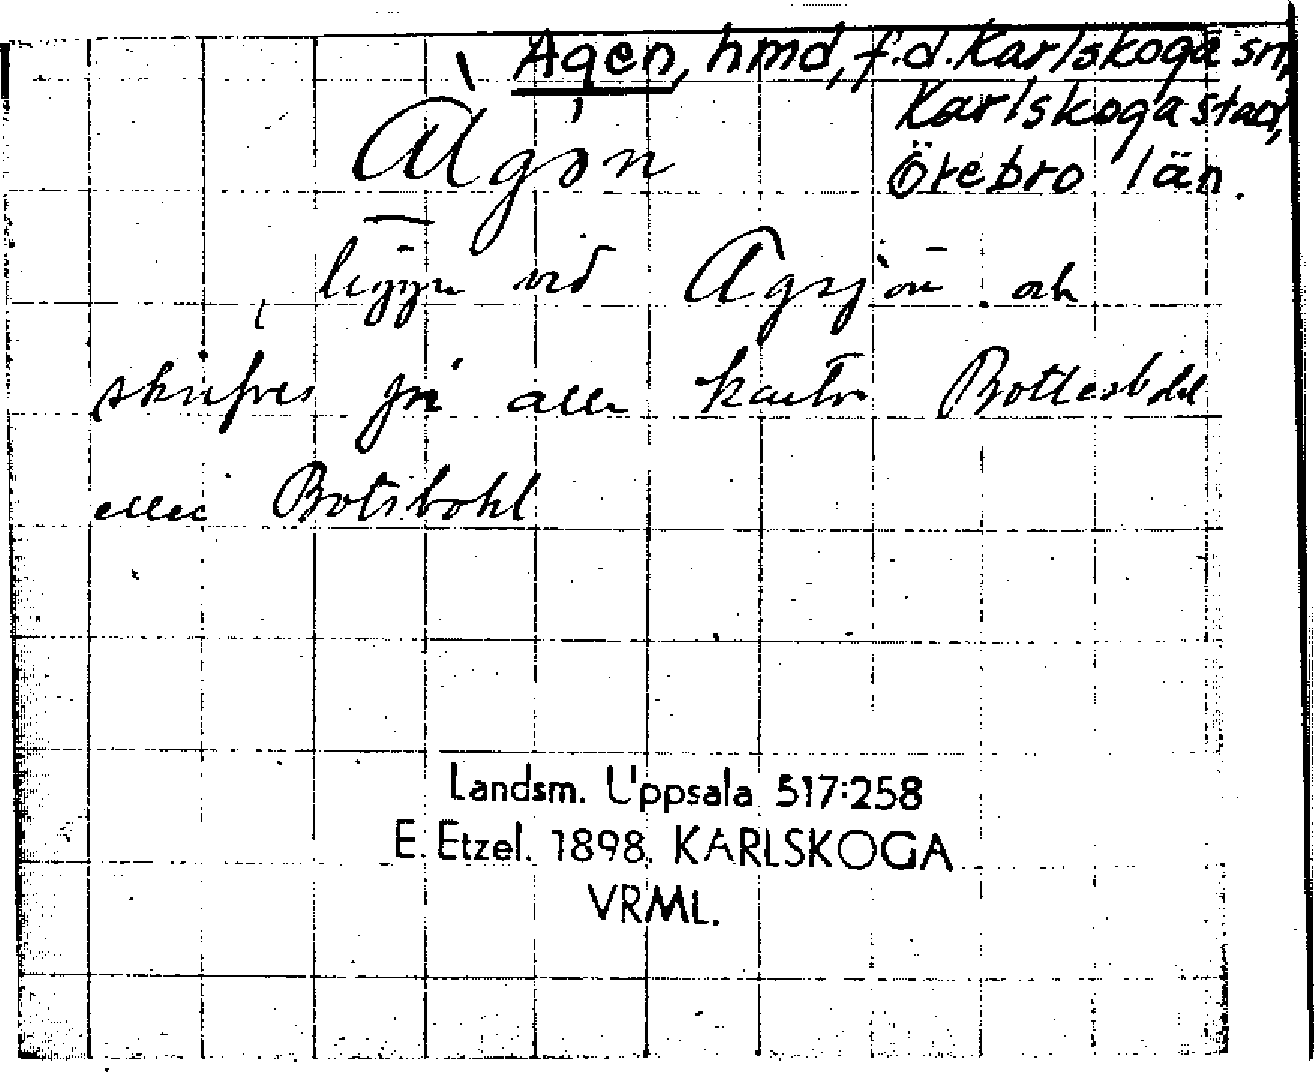 Agen, hmd, f.d. Karlskoga sn,
Karlskoga stad,
Örebro län.
Agön
ligger vid Agsjön och
skrifves på alla kartor Bottesbol
eller Botsbohl
Landsm. Uppsala 517:258
E. Etzel. 1898. KARLSKOGA
VRML.